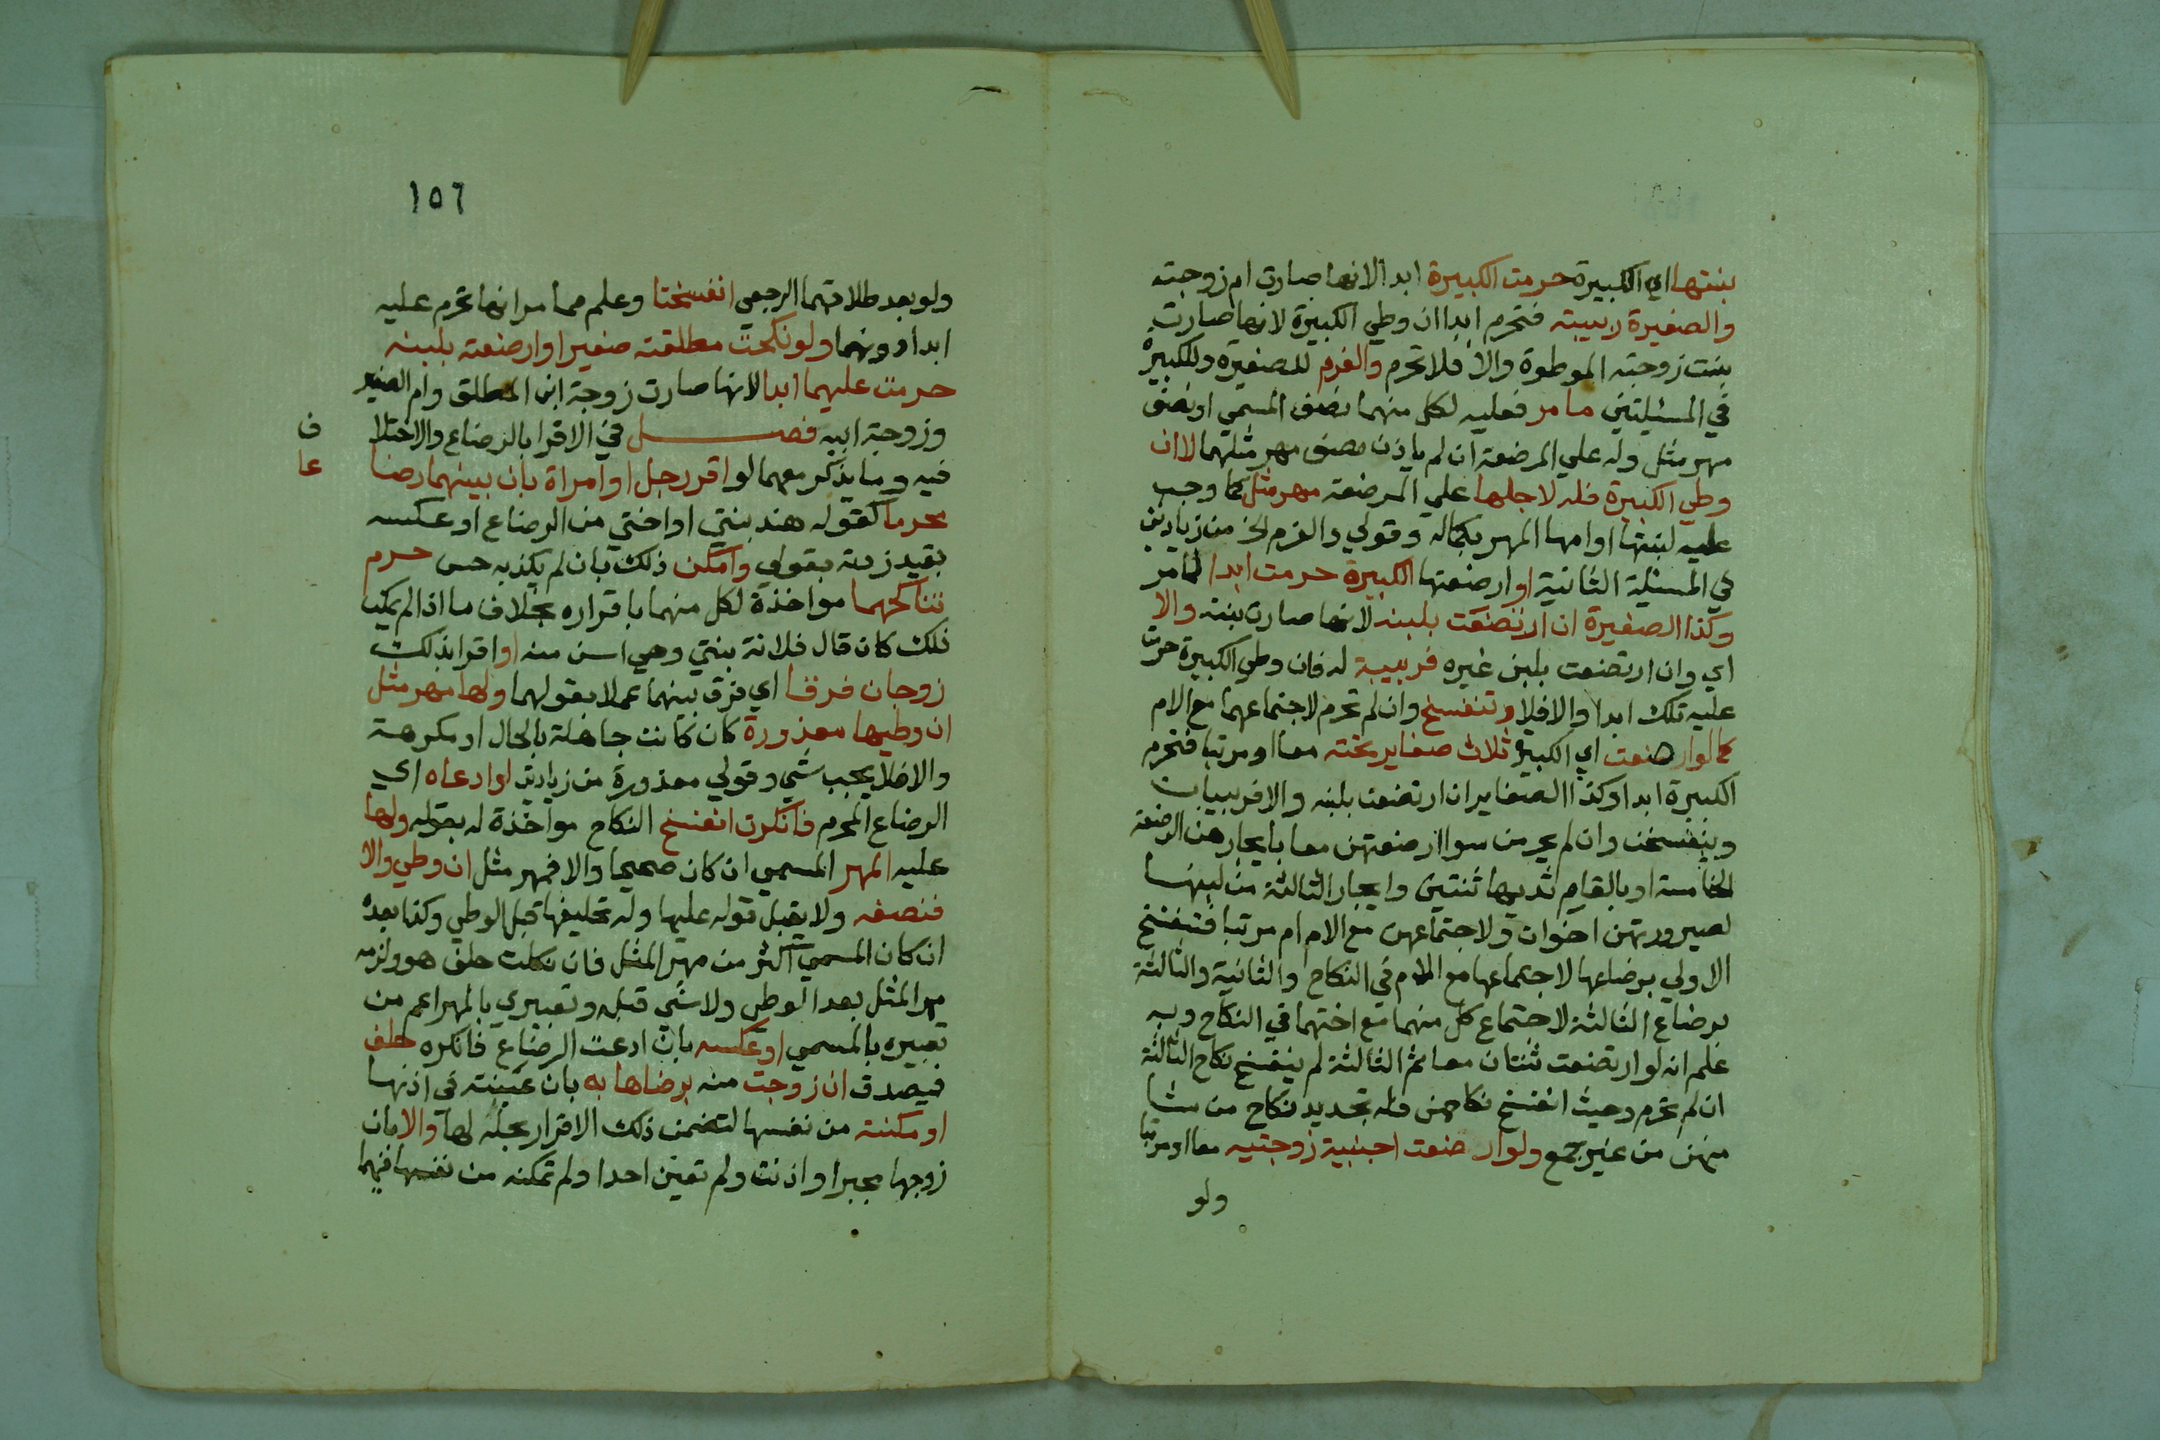 بنتها اي الكبيرة حرمت الكبيرة ابدا لانها صارت ام زوجته
والصغيرة ربيبته فتحرم ابدا ان وطي الكبيرة لانها صارت
بنت زوجته الموطوة والا فلا تحرم والغرم للصغيرة وللكبيرة
في المسئلتين ما مر فعليه لكل منهما نصف المسمي او نصف
مهر مثل وله علي المرضعة ان لم ياذن نصف مهر مثلهما لا ان
وطي الكبيرة فله لاجلها علي المرضعة مهر مثل كما وجب
عليه لبنتها او امها المهر بكماله وقولي والغرم الخ من زيادتي
في المسئلة الثانية او ارضعتها الكبيرة حرمت ابدا لما مر
وكذا الصغيرة ان ارتضعت بلبنه لانها صارت بنته والا
اي وان ارتضعت بلبن غيره فربيبة له فان وطي الكبيرة حرمت
عليه تلك ابدا والا فلا وتنفسخ وان لم تحرم لاجتماعهما مع الام
كما لو ارضعت اي الكبيرة ثلاث صغاير تحته معا او مرتبا فتحرم
الكبيرة ابدا وكذا الصغاير ان ارتضعت بلبنه والا فربيبات
وينفسخن وان لم يحرمن سوا ارضعتهن معا بايجارهن الرضعة
الخامسة او بالقام ثديها ثنتين وايجار الثالثة من لبنها
لصيرورتهن اخوات ولاجتماعهن مع الام ام مرتبا فتنفسخ
الاولي برضاعها لاجتماعها مع الام في النكاح والثانية والثالثة
برضاع الثالثة لاجتماع كل منهما مع اختهما في النكاح وبه
علم انه لو ارتضعت ثنتان معا ثم الثالثة لم ينفسخ نكاح الثالثة
ان لم تحرم وحيث انفسخ نكاحهن فله تجديد نكاح من شا
منهن من غير جمع ولو ارضعت اجنبية زوجتيه معا او مرتبا
ولو
١٥٦
ولو بعد طلاقهما الرجعي انفسختا وعلم مما مر انها تحرم عليه
ابدا دونهما ولو نكحت مطلقته صغيرا وارضعته بلبنه
حرمت عليهما ابدا لانها صارت زوجة ابن المطلق وام الصغير
وزوجة ابيه فصل في الاقرار بالرضاع والاختلا ف
فيه وما يذكر معهما لو اقر رجل او امراة بان بينهما رضا عا
محرما كقوله هند بنتي او اختي من الرضاع او عكسه
بقيد زدته بقولي وامكن ذلك بان لم يكذبه حس حرم
تناكحهما مواخذة لكل منهما باقراره بخلاف ما اذا لم يمكن
ذلك كان قال فلانة بنتي وهي اسن منه او اقر بذلك
زوجان فرقا اي فرق بينهما عملا بقولهما ولها مهر مثل
ان وطيها معذورة كان كانت جاهلة بالحال او مكرهة
والا فلا يجب شي وقولي معذورة من زيادتي او ادعاه اي
الرضاع المحرم فانكرت انفسخ النكاح مواخذة له بقوله ولها
عليه المهر المسمي ان كان صحيحا والا فمهر مثل ان وطي والا
فنصفه ولا يقبل قوله عليها وله تحليفها قبل الوطي وكذا بعده
ان كان المسمي اكثر من مهر المثل فان نكلت حلف هو ولزمه
مهر المثل بعد الوطي ولا شي قبله وتعبيري بالمهر اعم من
تعبيره بالمسمي او عكسه بان ادعت الرضاع فانكره حلف
فيصدق ان زوجت منه برضاها به بان عينته في اذنها
او مكنته من نفسها لتضمن ذلك الاقرار بحله لها والا بان
زوجها مجبر او اذنت ولم تعين احدا ولم تمكنه من نفسها فيهما